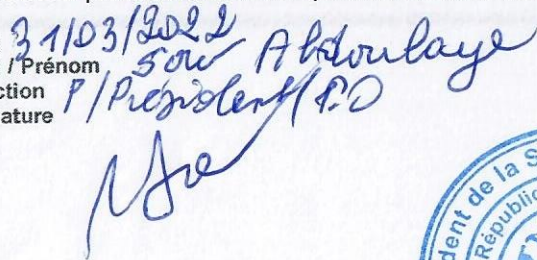 31/03/2022
/ Prénom Sow Abdoulaye
ction P/Président/P.O
ature
dent de la S
Républiq